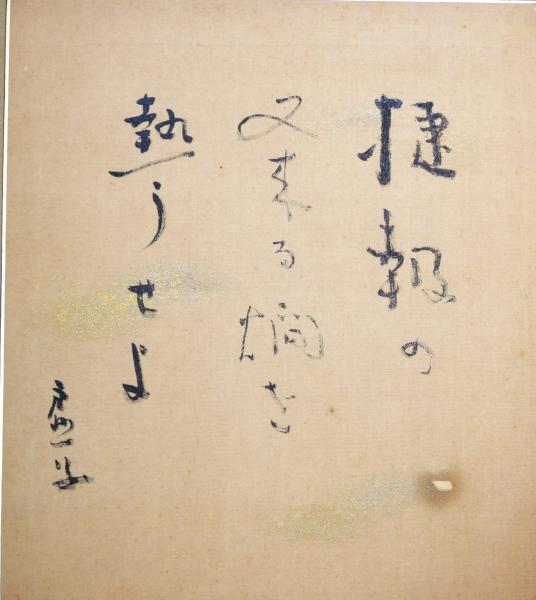 捷報の
又来る燗を
熱うせよ
虚子